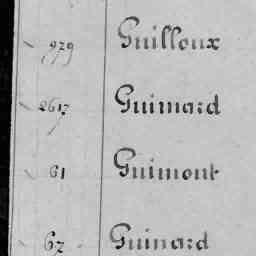 979 Guilloux
2617 Guimard
61 Guimont
67 Guinard